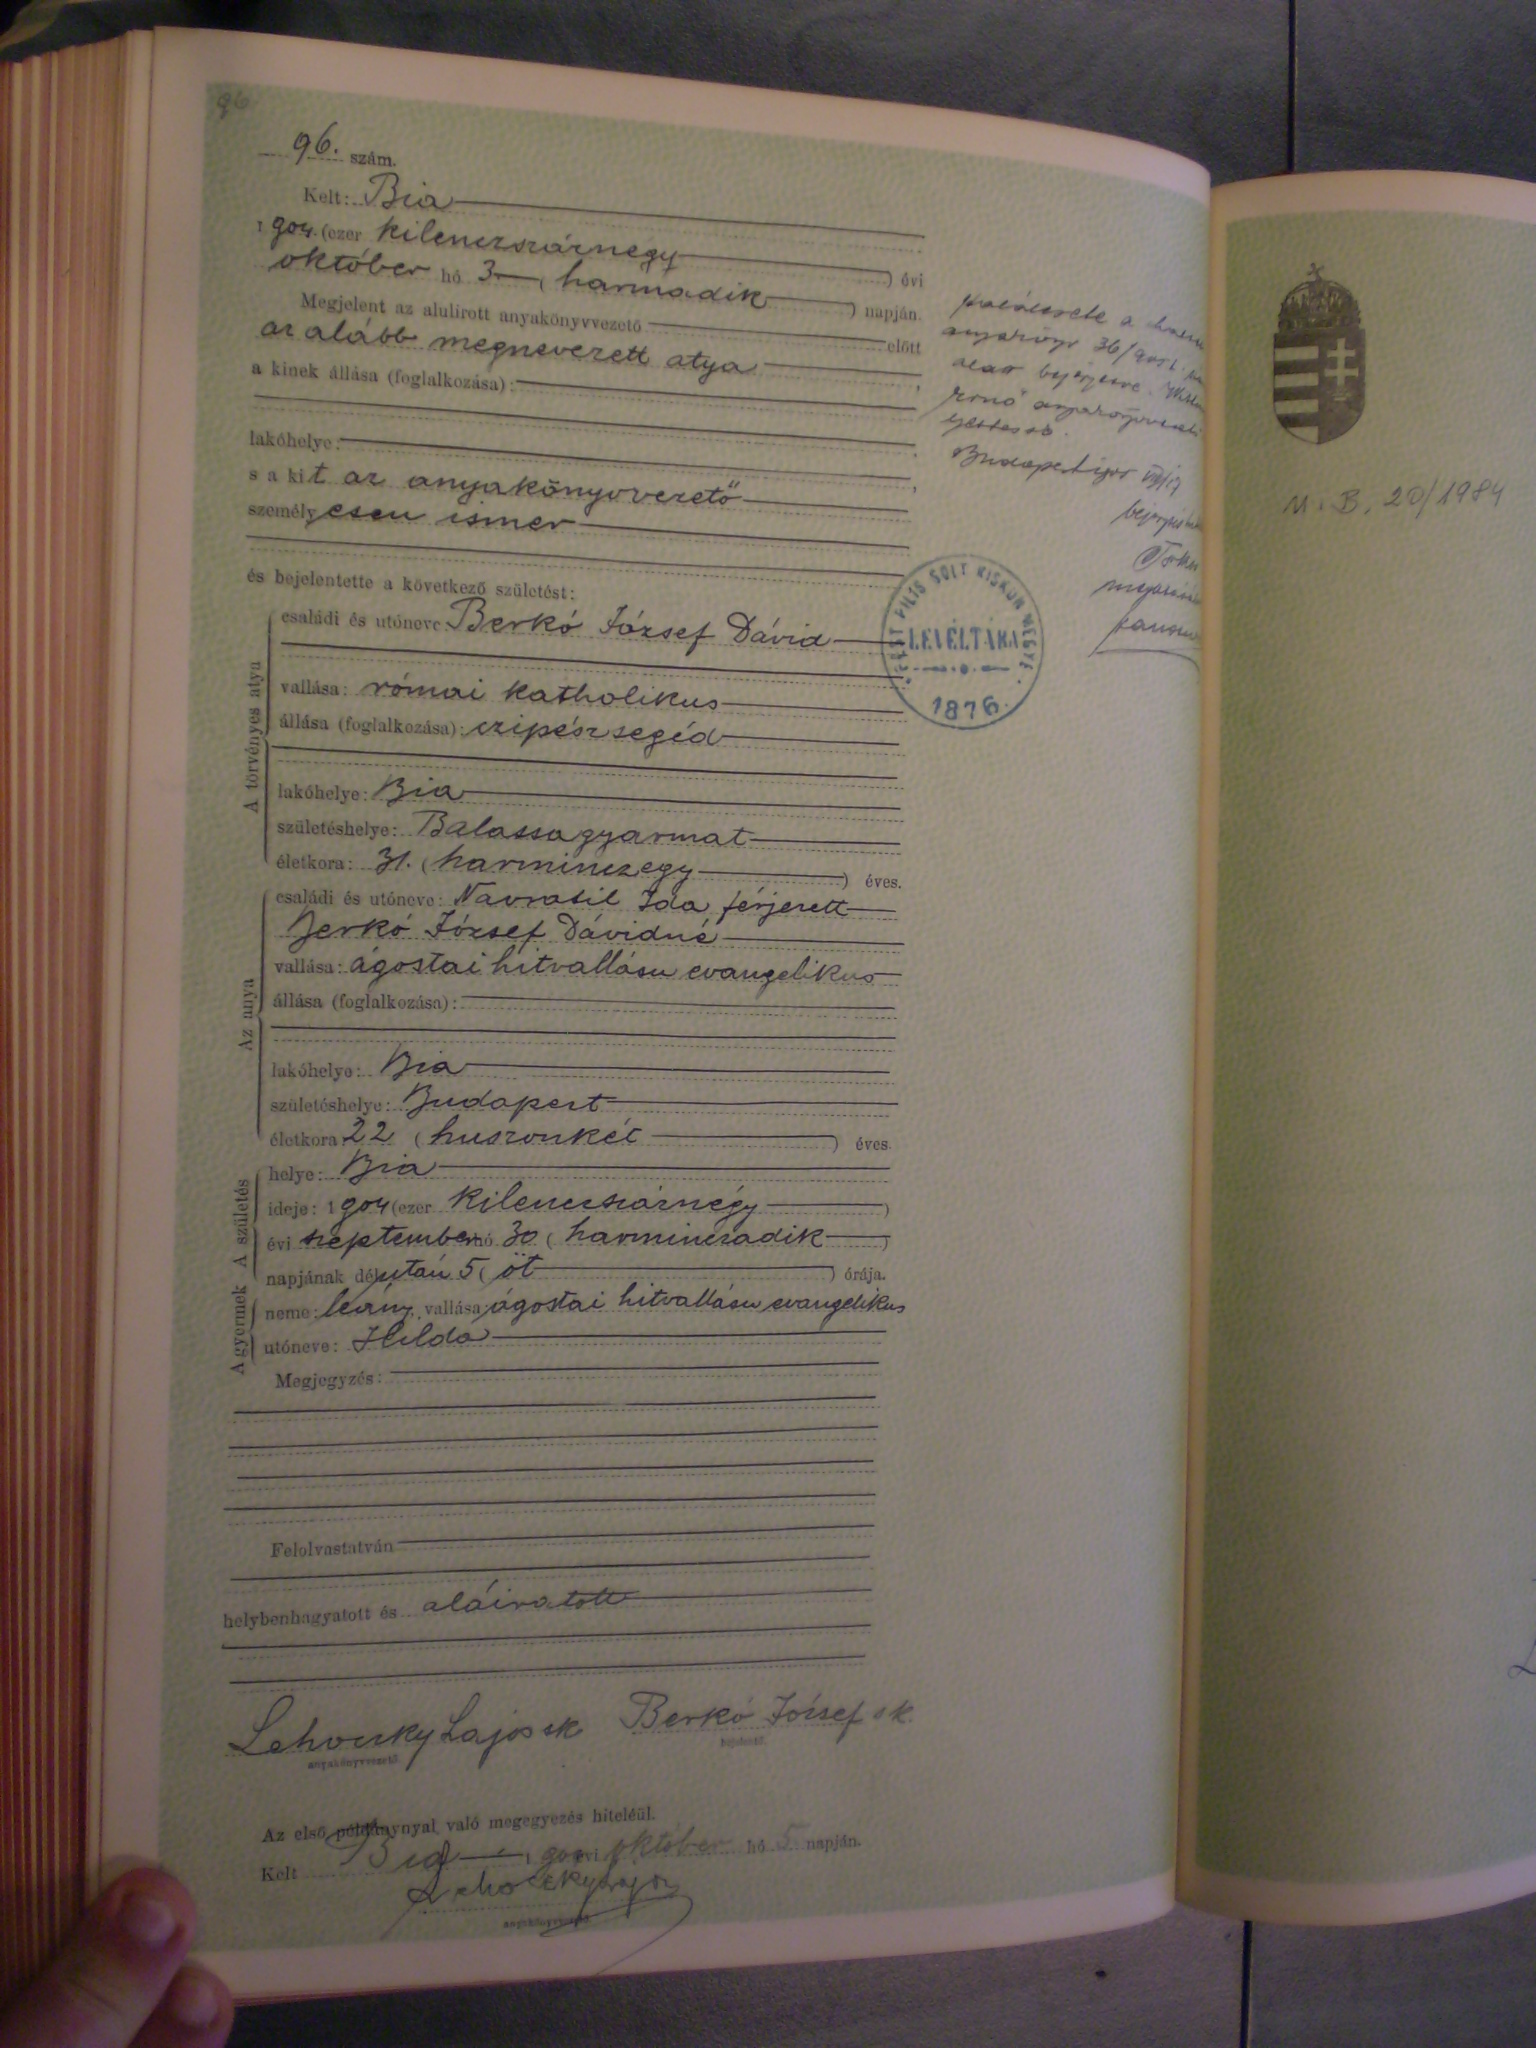 96
96. szám.
Kelt: Bia
1904. (ezer kilenczszáznégy ) évi
október hó 3 ( harmadik ) napján.
Megjelent az alulirott anyakönyvvezető előtt
az alább megnevezett atya ,
a kinek állása (foglalkozása):
lakóhelye:
s a kit az anyakönyvvezető ,
személyesen ismer
és bejelentette a következő születést:
A törvényes atya
családi és utóneve: Berkó József Dávid
vallása: római katholikus
állása (foglalkozása): czipészsegéd
lakóhelye: Bia
születéshelye: Balassagyarmat
életkora: 31. ( harminczegy ) éves.
Az anya
családi és utóneve: Navratil Ida férjezett
Berkó József Dávidné
vallása: ágostai hitvallásu evangelikus
állása (foglalkozása):
lakóhelye: Bia
születéshelye: Budapest
életkora 22 ( huszonkét ) éves.
A születés
helye: Bia
ideje: 1904 (ezer kilenczszáznégy )
évi szeptember hó 30 ( harminczadik )
napjának délután 5 ( öt ) órája.
A gyermek
neme: leány, vallása: ágostai hitvallásu evangelikus
utóneve: Hilda
Megjegyzés:
Felolvastatván
helybenhagyatott és aláiratott
Lehoczky Lajos sk Berkó József sk.
anyakönyvvezető bejelentő.
Az első példánynyal való megegyezés hiteléül.
Kelt Bia 1904 évi október hó 5 napján.
Lehoczky Lajos
anyakönyvvezető
a
anyakönyv 36/
alatt bejegyezve.
Budapest
PEST PILIS SOLT KISKUN MEGYE
LEVÉLTÁRA
1876.
U. B. 20/1984